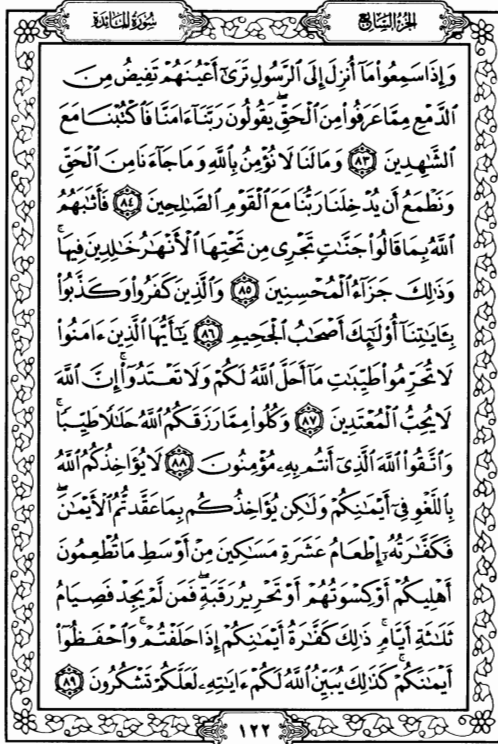 سُورَةُ المَائـِدَةِ
الجُزءُ السَّابِعُ
وَإِذَا سَمِعُوا۟ مَآ أُنزِلَ إِلَى ٱلرَّسُولِ تَرَىٰٓ أَعْيُنَهُمْ تَفِيضُ مِنَ
ٱلدَّمْعِ مِمَّا عَرَفُوا۟ مِنَ ٱلْحَقِّۖ يَقُولُونَ رَبَّنَآ ءَامَنَّا فَٱكْتُبْنَا مَعَ
ٱلشَّٰهِدِينَ ٨٣ وَمَا لَنَا لَا نُؤْمِنُ بِٱللَّهِ وَمَا جَآءَنَا مِنَ ٱلْحَقِّ
وَنَطْمَعُ أَن يُدْخِلَنَا رَبُّنَا مَعَ ٱلْقَوْمِ ٱلصَّٰلِحِينَ ٨٤ فَأَثَٰبَهُمُ
ٱللَّهُ بِمَا قَالُوا۟ جَنَّٰتٍ تَجْرِى مِن تَحْتِهَا ٱلْأَنْهَٰرُ خَٰلِدِينَ فِيهَاۚ
وَذَٰلِكَ جَزَآءُ ٱلْمُحْسِنِينَ ٨٥ وَٱلَّذِينَ كَفَرُوا۟ وَكَذَّبُوا۟
بِـَٔايَٰتِنَآ أُو۟لَٰٓئِكَ أَصْحَٰبُ ٱلْجَحِيمِ ٨٦ يَٰٓأَيُّهَا ٱلَّذِينَ ءَامَنُوا۟
لَا تُحَرِّمُوا۟ طَيِّبَٰتِ مَآ أَحَلَّ ٱللَّهُ لَكُمْ وَلَا تَعْتَدُوٓا۟ۚ إِنَّ ٱللَّهَ
لَا يُحِبُّ ٱلْمُعْتَدِينَ ٨٧ وَكُلُوا۟ مِمَّا رَزَقَكُمُ ٱللَّهُ حَلَٰلًا طَيِّبًاۚ
وَٱتَّقُوا۟ ٱللَّهَ ٱلَّذِىٓ أَنتُم بِهِۦ مُؤْمِنُونَ ٨٨ لَا يُؤَاخِذُكُمُ ٱللَّهُ
بِٱللَّغْوِ فِىٓ أَيْمَٰنِكُمْ وَلَٰكِن يُؤَاخِذُكُم بِمَا عَقَّدتُّمُ ٱلْأَيْمَٰنَۖ
فَكَفَّٰرَتُهُۥٓ إِطْعَامُ عَشَرَةِ مَسَٰكِينَ مِنْ أَوْسَطِ مَا تُطْعِمُونَ
أَهْلِيكُمْ أَوْ كِسْوَتُهُمْ أَوْ تَحْرِيرُ رَقَبَةٍۖ فَمَن لَّمْ يَجِدْ فَصِيَامُ
ثَلَٰثَةِ أَيَّامٍۚ ذَٰلِكَ كَفَّٰرَةُ أَيْمَٰنِكُمْ إِذَا حَلَفْتُمْۚ وَٱحْفَظُوٓا۟
أَيْمَٰنَكُمْۚ كَذَٰلِكَ يُبَيِّنُ ٱللَّهُ لَكُمْ ءَايَٰتِهِۦ لَعَلَّكُمْ تَشْكُرُونَ ٨٩
١٢٢